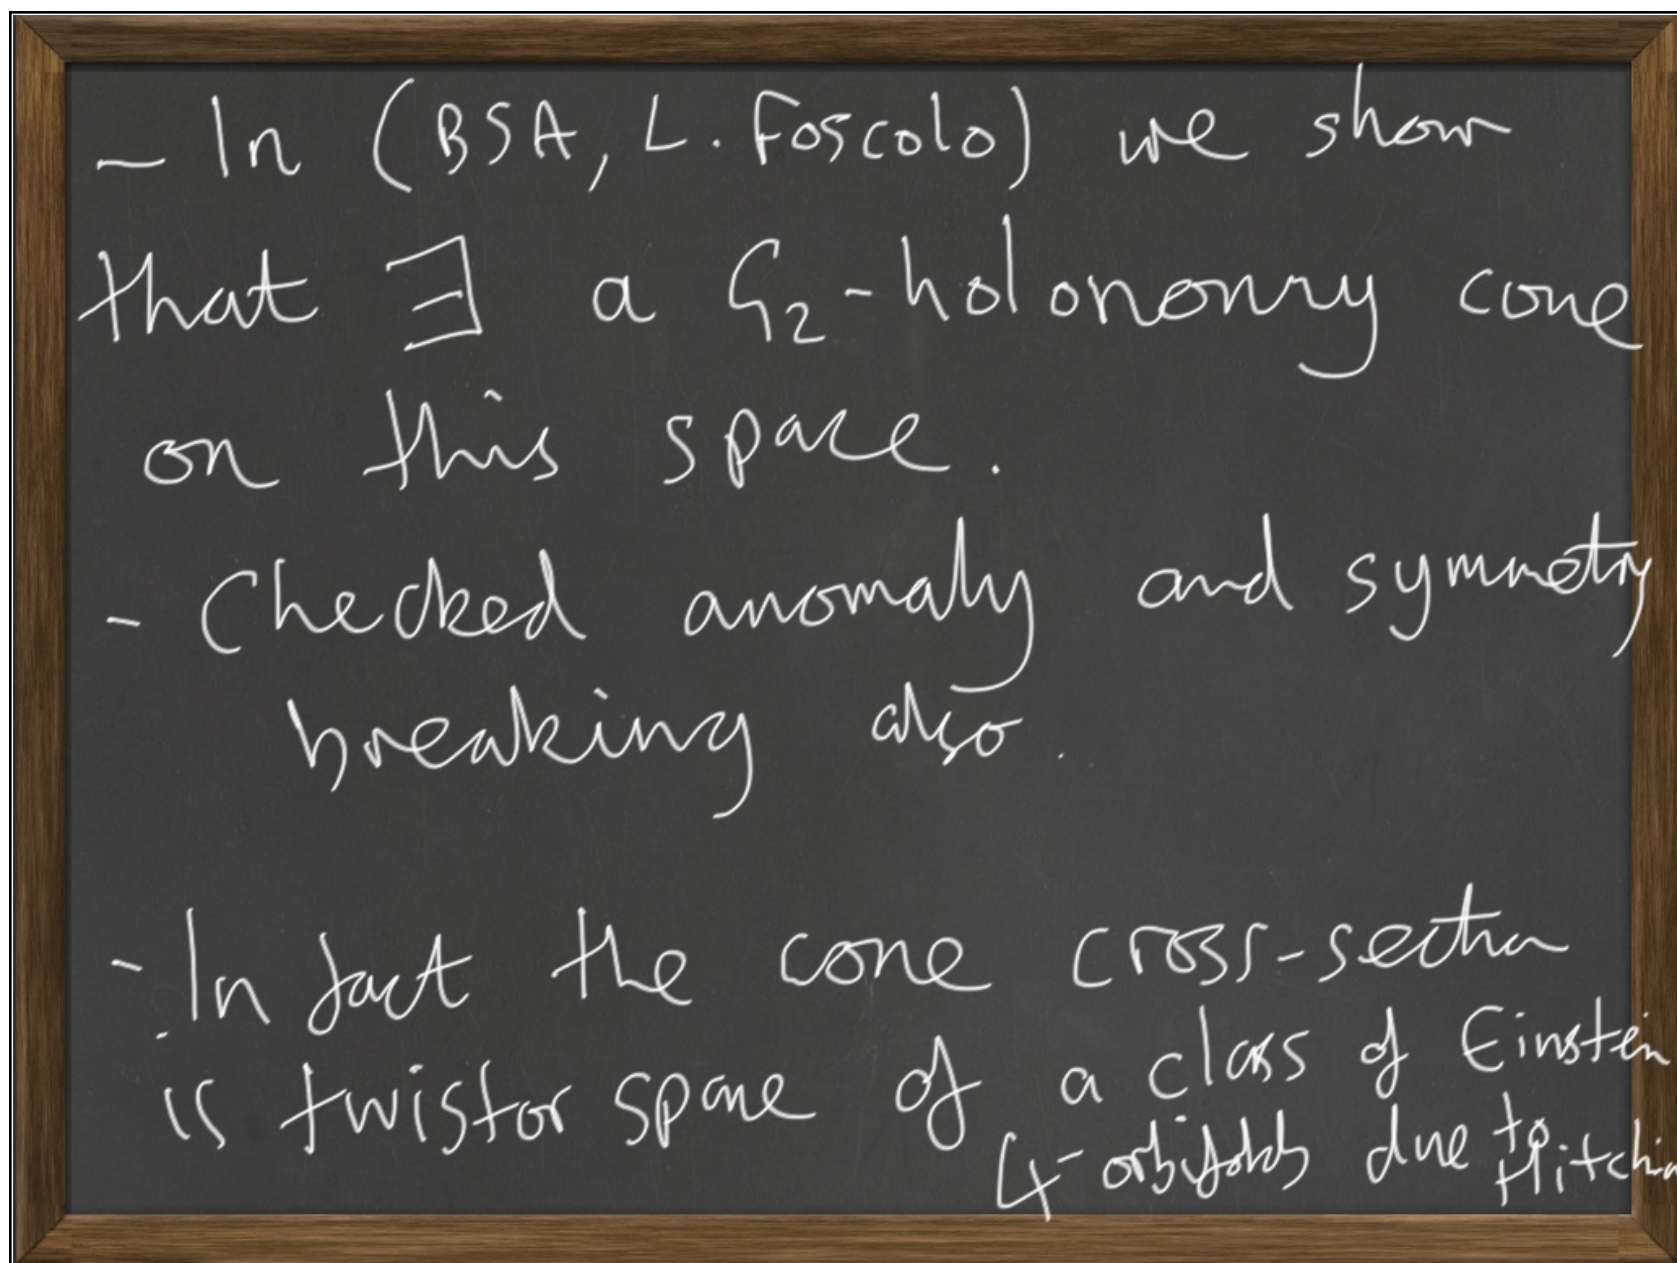 - In (BSA, L. Foscolo) we show
that ∃ a G₂-holonomy cone
on this space.
- Checked anomaly and symmetry
breaking also.
- In fact the cone cross-section
is twistor space of a class of Einstein
4-orbifolds due to Hitchin